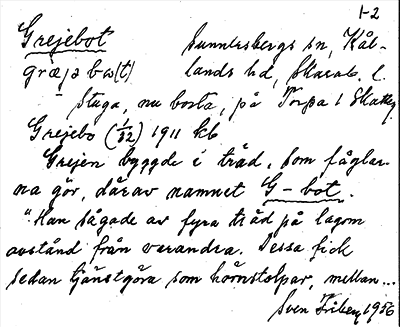 1-2
Grejebot Sunnersbergs sn, Kål-
græjəbω(t) lands hd, Skarab. l.
Stuga, nu borta, på Torpa 1 Skattg
Grejebo (1/32) 1911 kb
Grejen byggde i träd, som fåglar-
na gör, därav namnet G-bot.
"Han sågade av fyra träd på lagom
avstånd från varandra. Dessa fick
sedan tjänstgöra som hörnstolpar, mellan...
Sven 1956